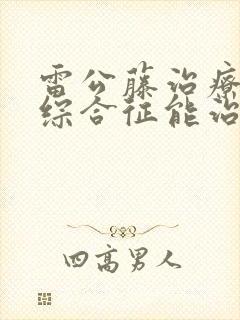 雷公藤治療
综合征能治
四高男人